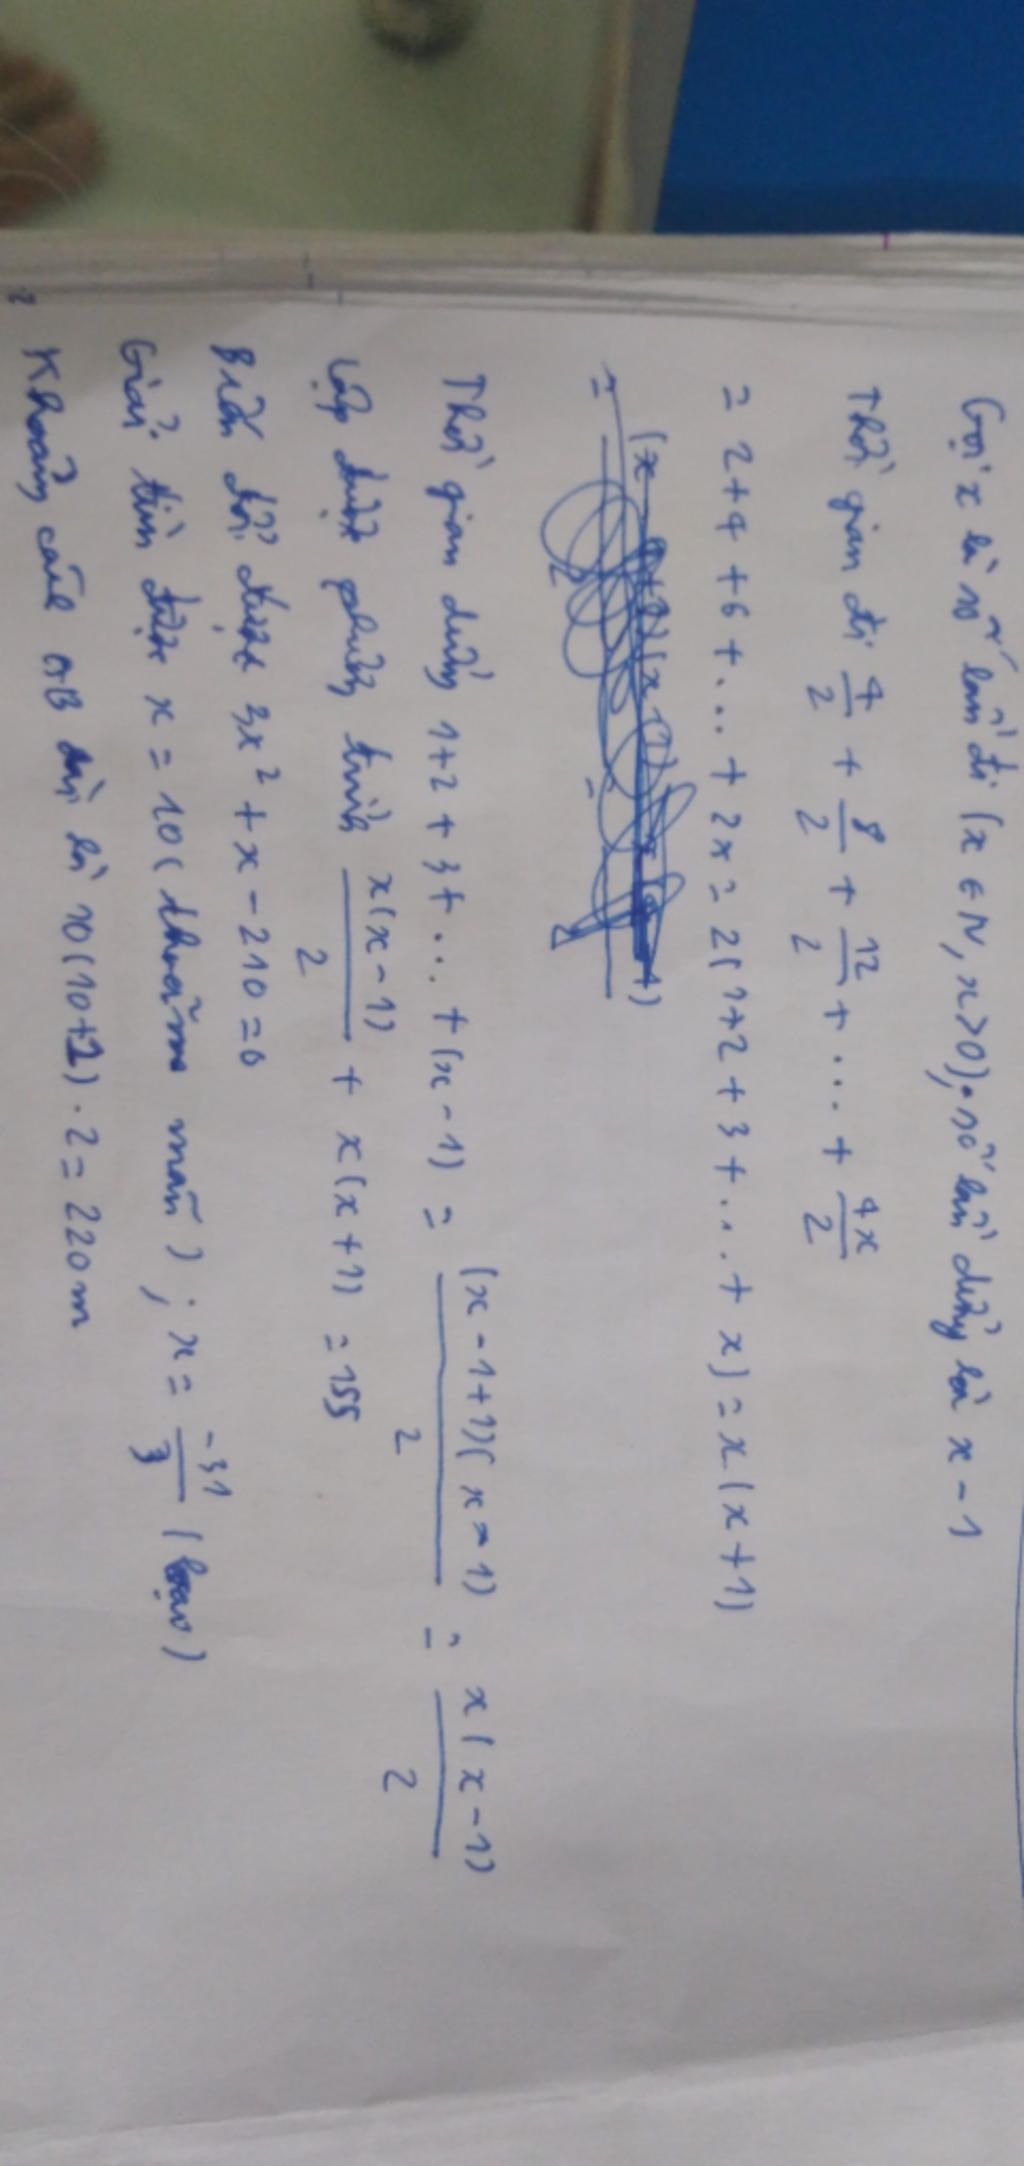 Gọi x là số lần đi (x ∈ N, x>0), số lần dừng là x - 1
Thời gian đi 4/2 + 8/2 + 12/2 + ... + 4x/2
= 2+4+6+...+2x = 2(1+2+3+...+x) = x(x+1)
=
Thời gian dừng 1+2+3+...+(x-1) = (x-1+1)(x-1)/2 = x(x-1)/2
Lập được phương trình x(x-1)/2 + x(x+1) = 155
Biến đổi được 3x² + x - 210 = 0
Giải tìm được x = 10 (thoã mãn) ; x = -31/3 (loại)
Khoảng cách AB dài là 10(10+1).2 = 220m